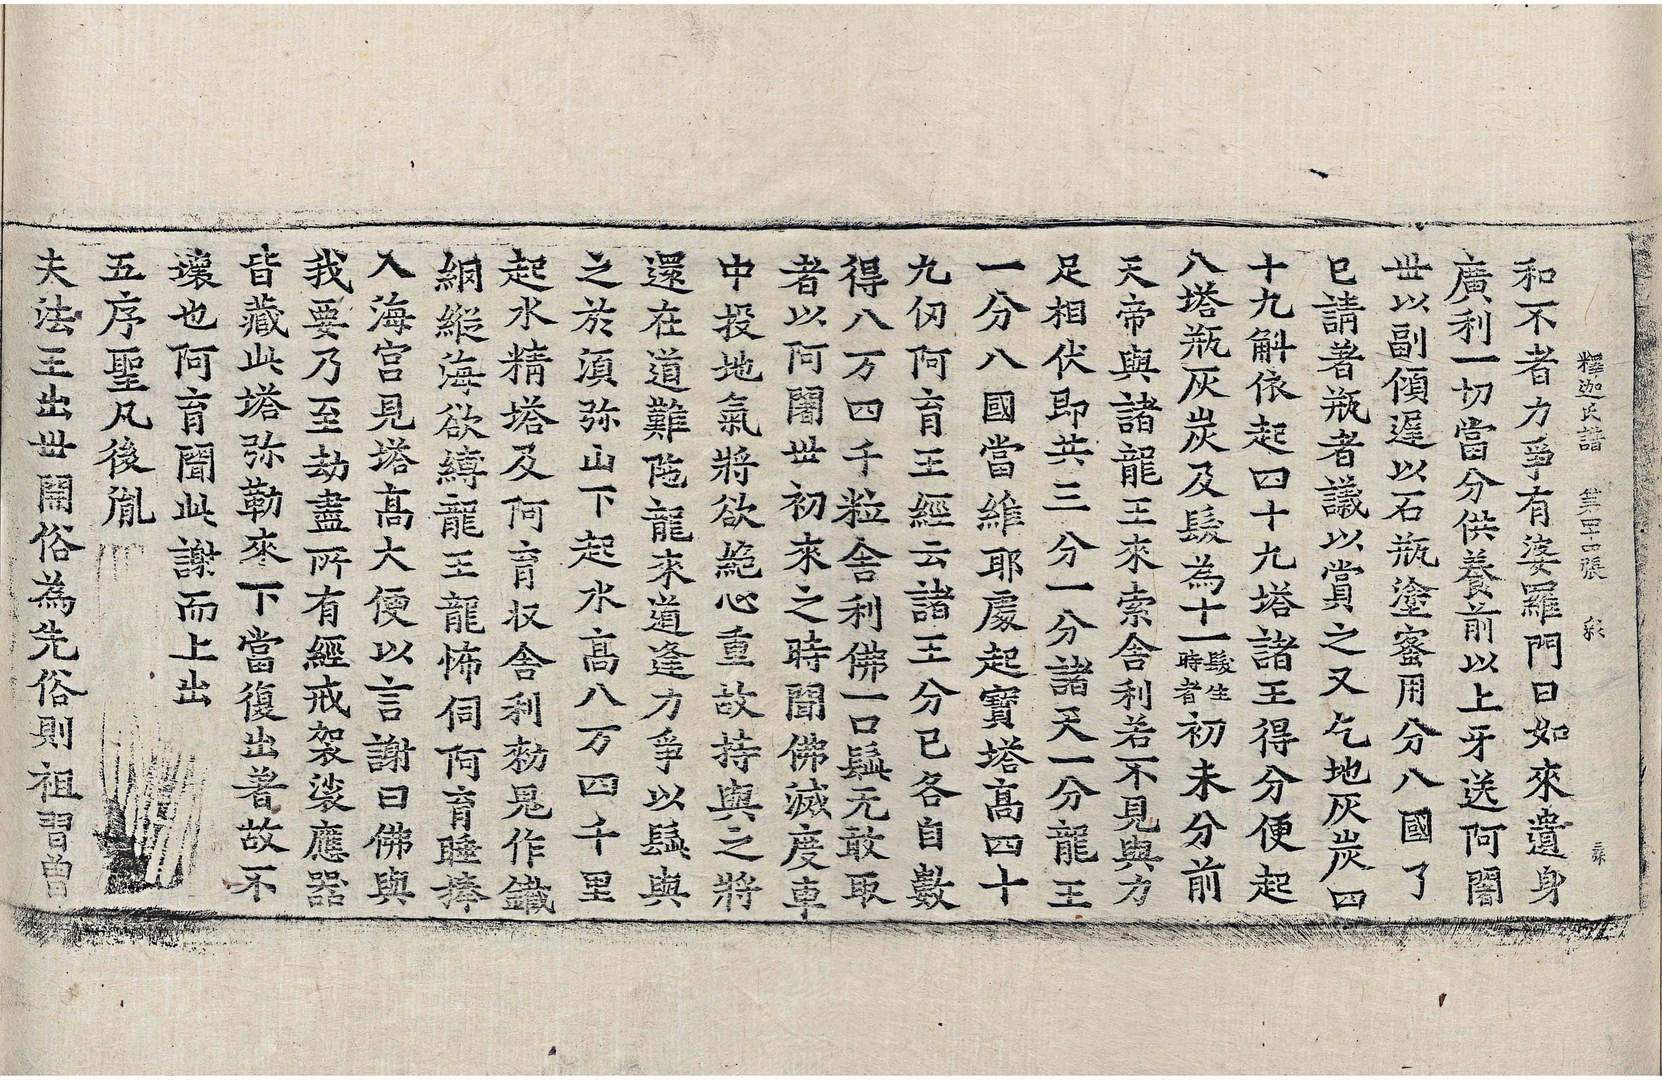 釋迦氏譜 第四十張 㲋
和不者力爭有婆羅門曰如來遺身
廣利一切當分供養前以上牙送阿闍
丗以副傾遲以石瓶塗蜜用分八國了
已請著瓶者議以賞之又乞地灰炭四
十九斛依起四十九塔諸王得分便起
八塔瓶灰炭及髮為十一髮生時者初未分前
天帝與諸龍王來索舍利若不見與力
足相伏即共三分一分諸天一分龍王
一分八國當維耶處起寶塔高四十
九仞阿育王經云諸王分已各自數
得八万四千粒舍利佛一口髭无敢取
者以阿闍丗初來之時聞佛滅度車
中投地氣將欲絕心重故持與之將
還在道難陁龍來道逢力爭以髭與
之於須弥山下起水高八万四千里
起水精塔及阿育収舍利勑鬼作鐵
網縱海欲縛龍王龍怖伺阿育睡捧
入海宮見塔高大便以言謝曰佛與
我要乃至劫盡所有經戒袈裟應器
皆藏此塔弥勒來下當復出著故不
壞也阿育聞此謝而上出
五序聖凡後胤
夫法王出丗開俗為先俗則祖習曾